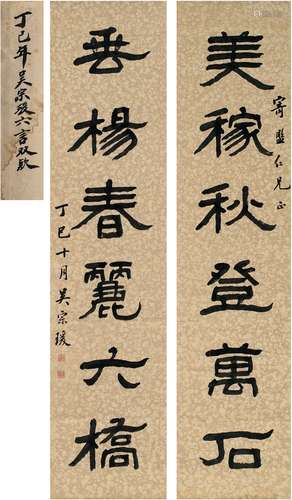 美稼秋登萬石
寄盫仁兄正
垂楊春麗六橋
丁巳十月吳宗瑗
丁巳年吳宗瑗六言双款